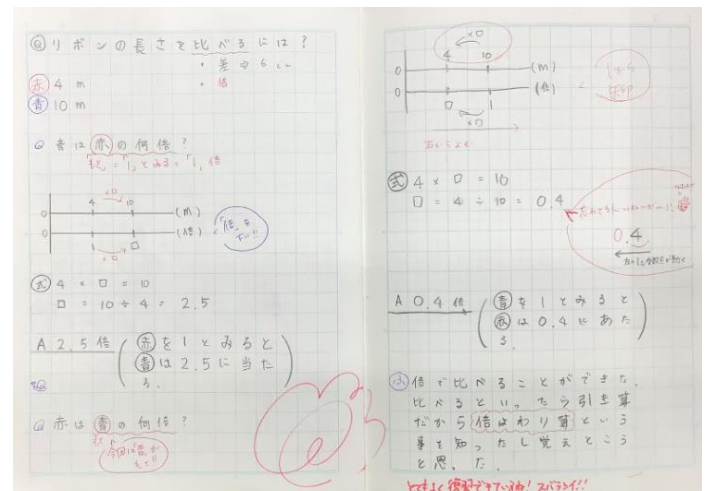 Ⓠリボンの長さを比べるには?
・差⇒6
・倍
赤 4m
青 10m
Q 青は赤の何倍?
もと=「1」とみる=「1」倍
×□
4 10
0 (m)
0 (倍)
1 □
×□
「倍」を
下に!!
式 4×□=10
□=10÷4=2.5
A 2.5倍(赤を1とみると
青は2.5に当た
る。)
Q 赤は青の何倍?
もと
今回は青が
もと!!
×□
4 10
0 (m)
0 (倍)
□ 1
×□
1から
矢印
式 4×□=10
□=4÷10=0.4
0.4
A 0.4倍(青を1とみると
赤は0.4にあた
る。)
ふ 倍で比べることができた。
比べるといったら引き算
だから倍はわり算という
事を知ったし覚えとこう
と思った。
とてもよく復習できているね!スバラシイ!!